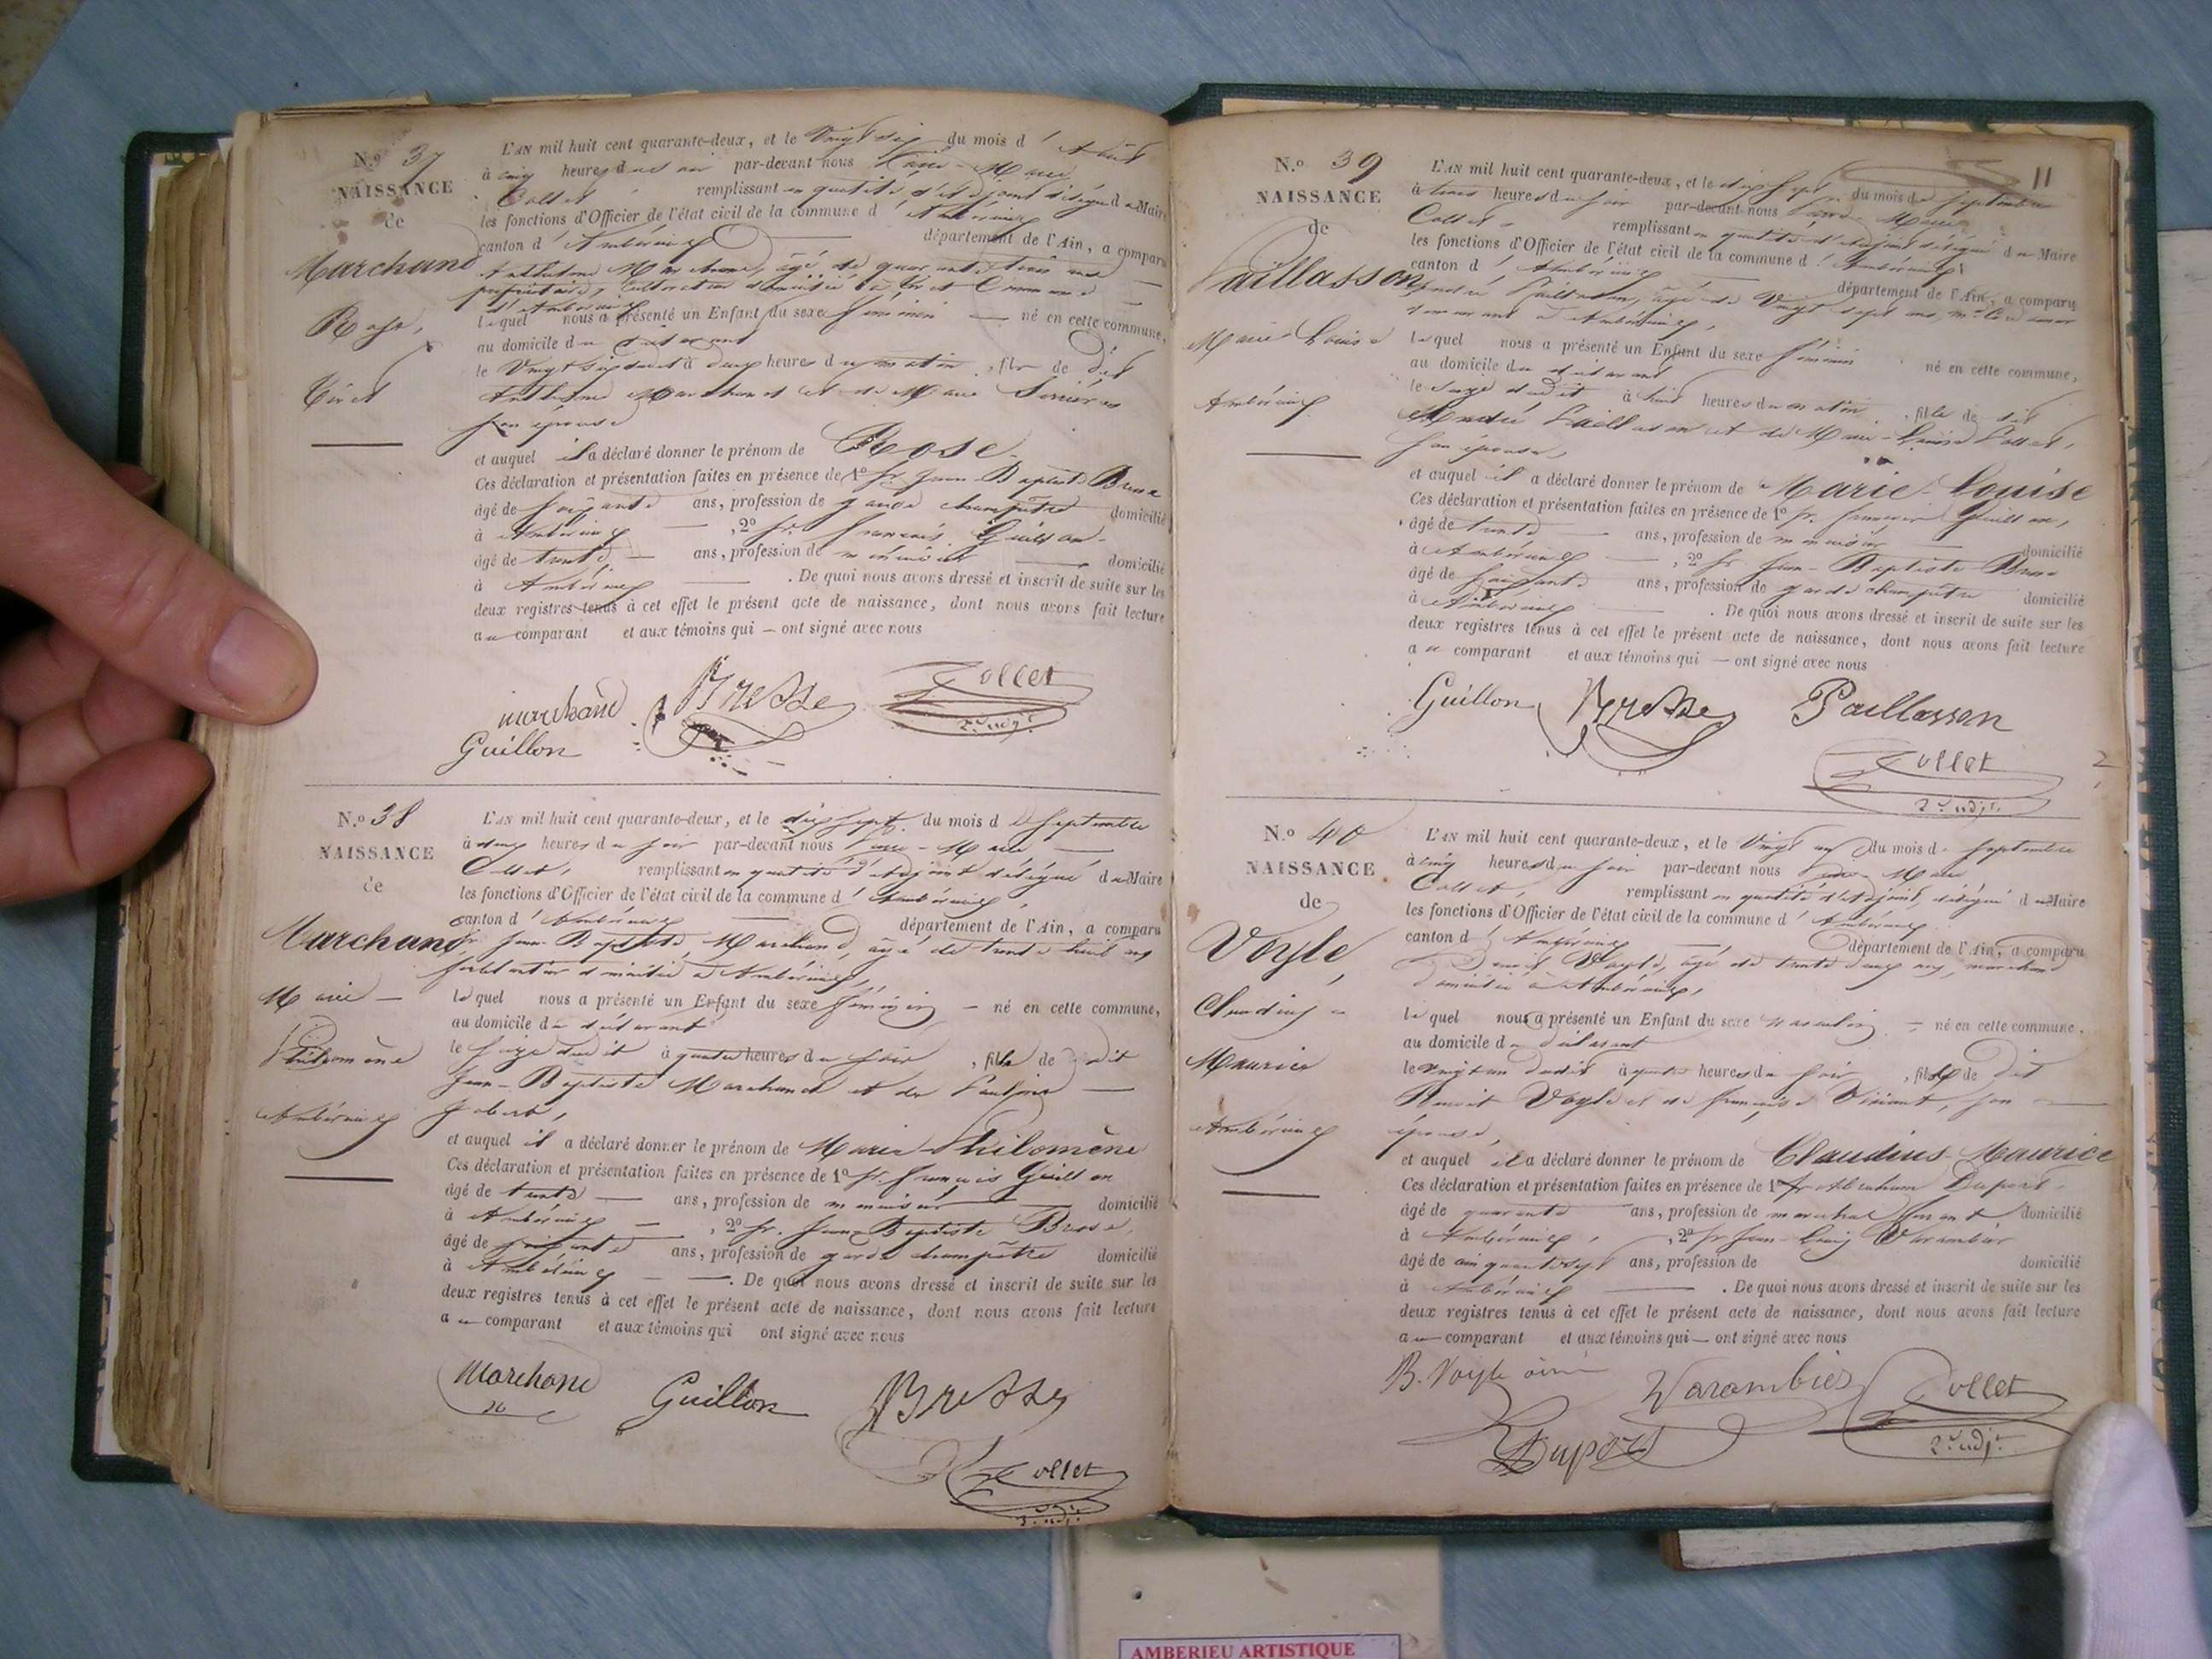 N.º 37
NAISSANCE
de
Marchand
Rose,
Tiret
L'AN mil huit cent quarante-deux, et le Vingt six du mois d'Août
à cinq heures du soir par-devant nous Marie
Collet remplissant en qualité d'adjoint délégué du Maire
les fonctions d'Officier de l'état civil de la commune d'Ambérieux
canton d'Ambérieux département de l'Ain, a comparu
Anthelme Marchand, âgé de quarante trois ans
propriétaire, cultivateur domicilié à Tiret Commune
d'Ambérieux
lequel nous a présenté un Enfant du sexe féminin né en cette commune,
au domicile du déclarant
le Vingt six dudit à deux heures du matin, fille de dit
Anthelme Marchand et de Marie
son épouse
et auquel il a déclaré donner le prénom de Rose.
Ces déclaration et présentation faites en présence de 1º Sr. Jean Baptiste Bresse
âgé de soixante ans, profession de garde champêtre domicilié
à Ambérieux, 2º Sr. François Guillon
âgé de trente ans, profession de menuisier domicilié
à Ambérieux. De quoi nous avons dressé et inscrit de suite sur les
deux registres tenus à cet effet le présent acte de naissance, dont nous avons fait lecture
au comparant et aux témoins qui ont signé avec nous
marchand Bresse Collet
2e adjt.
Guillon
N.º 38
NAISSANCE
de
Marchand
Marie
Philomène
Ambérieux
L'AN mil huit cent quarante-deux, et le dix sept du mois de Septembre
à cinq heures du soir par-devant nous Marie
Collet, remplissant en qualité d'adjoint délégué du Maire
les fonctions d'Officier de l'état civil de la commune d'Ambérieux,
canton d'Ambérieux département de l'Ain, a comparu
Sr. Jean-Baptiste Marchand, âgé de trente huit ans
domicilié à Ambérieux,
lequel nous a présenté un Enfant du sexe féminin né en cette commune,
au domicile du déclarant
le seize dudit à quatre heures du soir, fille de dit
Jean-Baptiste Marchand et de
et auquel il a déclaré donner le prénom de Marie Philomène
Ces déclaration et présentation faites en présence de 1º Sr. François Guillon
âgé de trente ans, profession de menuisier domicilié
à Ambérieux, 2º Sr. Jean-Baptiste Bresse,
âgé de soixante ans, profession de garde champêtre domicilié
à Ambérieux. De quoi nous avons dressé et inscrit de suite sur les
deux registres tenus à cet effet le présent acte de naissance, dont nous avons fait lecture
au comparant et aux témoins qui ont signé avec nous
Marchand Guillon Bresse
Collet
2e adjt.
11
N.º 39
NAISSANCE
de
Paillasson
Marie Louise
Ambérieux
L'AN mil huit cent quarante-deux, et le dix sept du mois de Septembre
à trois heures du soir par-devant nous Marie
Collet remplissant en qualité d'adjoint délégué du Maire
les fonctions d'Officier de l'état civil de la commune d'Ambérieux
canton d'Ambérieux département de l'Ain, a comparu
André Paillasson, âgé de Vingt sept ans,
demeurant à Ambérieux,
lequel nous a présenté un Enfant du sexe féminin né en cette commune,
au domicile du déclarant
le seize dudit à huit heures du matin, fille de dit
André Paillasson et de Marie-Louise Collet,
son épouse,
et auquel il a déclaré donner le prénom de Marie-Louise
Ces déclaration et présentation faites en présence de 1º Sr. François Guillon,
âgé de trente ans, profession de menuisier domicilié
à Ambérieux, 2º Sr Jean-Baptiste Bresse
âgé de soixante ans, profession de garde champêtre domicilié
à Ambérieux. De quoi nous avons dressé et inscrit de suite sur les
deux registres tenus à cet effet le présent acte de naissance, dont nous avons fait lecture
au comparant et aux témoins qui ont signé avec nous
Guillon Bresse Paillasson
Collet
2e adjt.
N.º 40
NAISSANCE
de
Voyle,
Claudius
Maurice
Ambérieux
L'AN mil huit cent quarante-deux, et le Vingt un du mois de Septembre
à cinq heures du soir par-devant nous Marie
Collet, remplissant en qualité d'adjoint, délégué du Maire
les fonctions d'Officier de l'état civil de la commune d'Ambérieux
canton d'Ambérieux département de l'Ain, a comparu
Benoît Voyle, âgé de trente deux ans, marchand
domicilié à Ambérieux,
lequel nous a présenté un Enfant du sexe masculin né en cette commune,
au domicile du déclarant
le vingt un dudit à quatre heures du soir, fils de dit
Benoit Voyle et de françoise, son
épouse,
et auquel il a déclaré donner le prénom de Claudius Maurice
Ces déclaration et présentation faites en présence de 1º Sr Abraham Duport
âgé de quarante ans, profession de maréchal ferrant domicilié
à Ambérieux, 2º Sr Jean-Louis Varambier
âgé de cinquante sept ans, profession de domicilié
à Ambérieux. De quoi nous avons dressé et inscrit de suite sur les
deux registres tenus à cet effet le présent acte de naissance, dont nous avons fait lecture
au comparant et aux témoins qui ont signé avec nous
B. Voyle ainé Varambier Collet
2e adjt.
Duport
AMBERIEU ARTISTIQUE